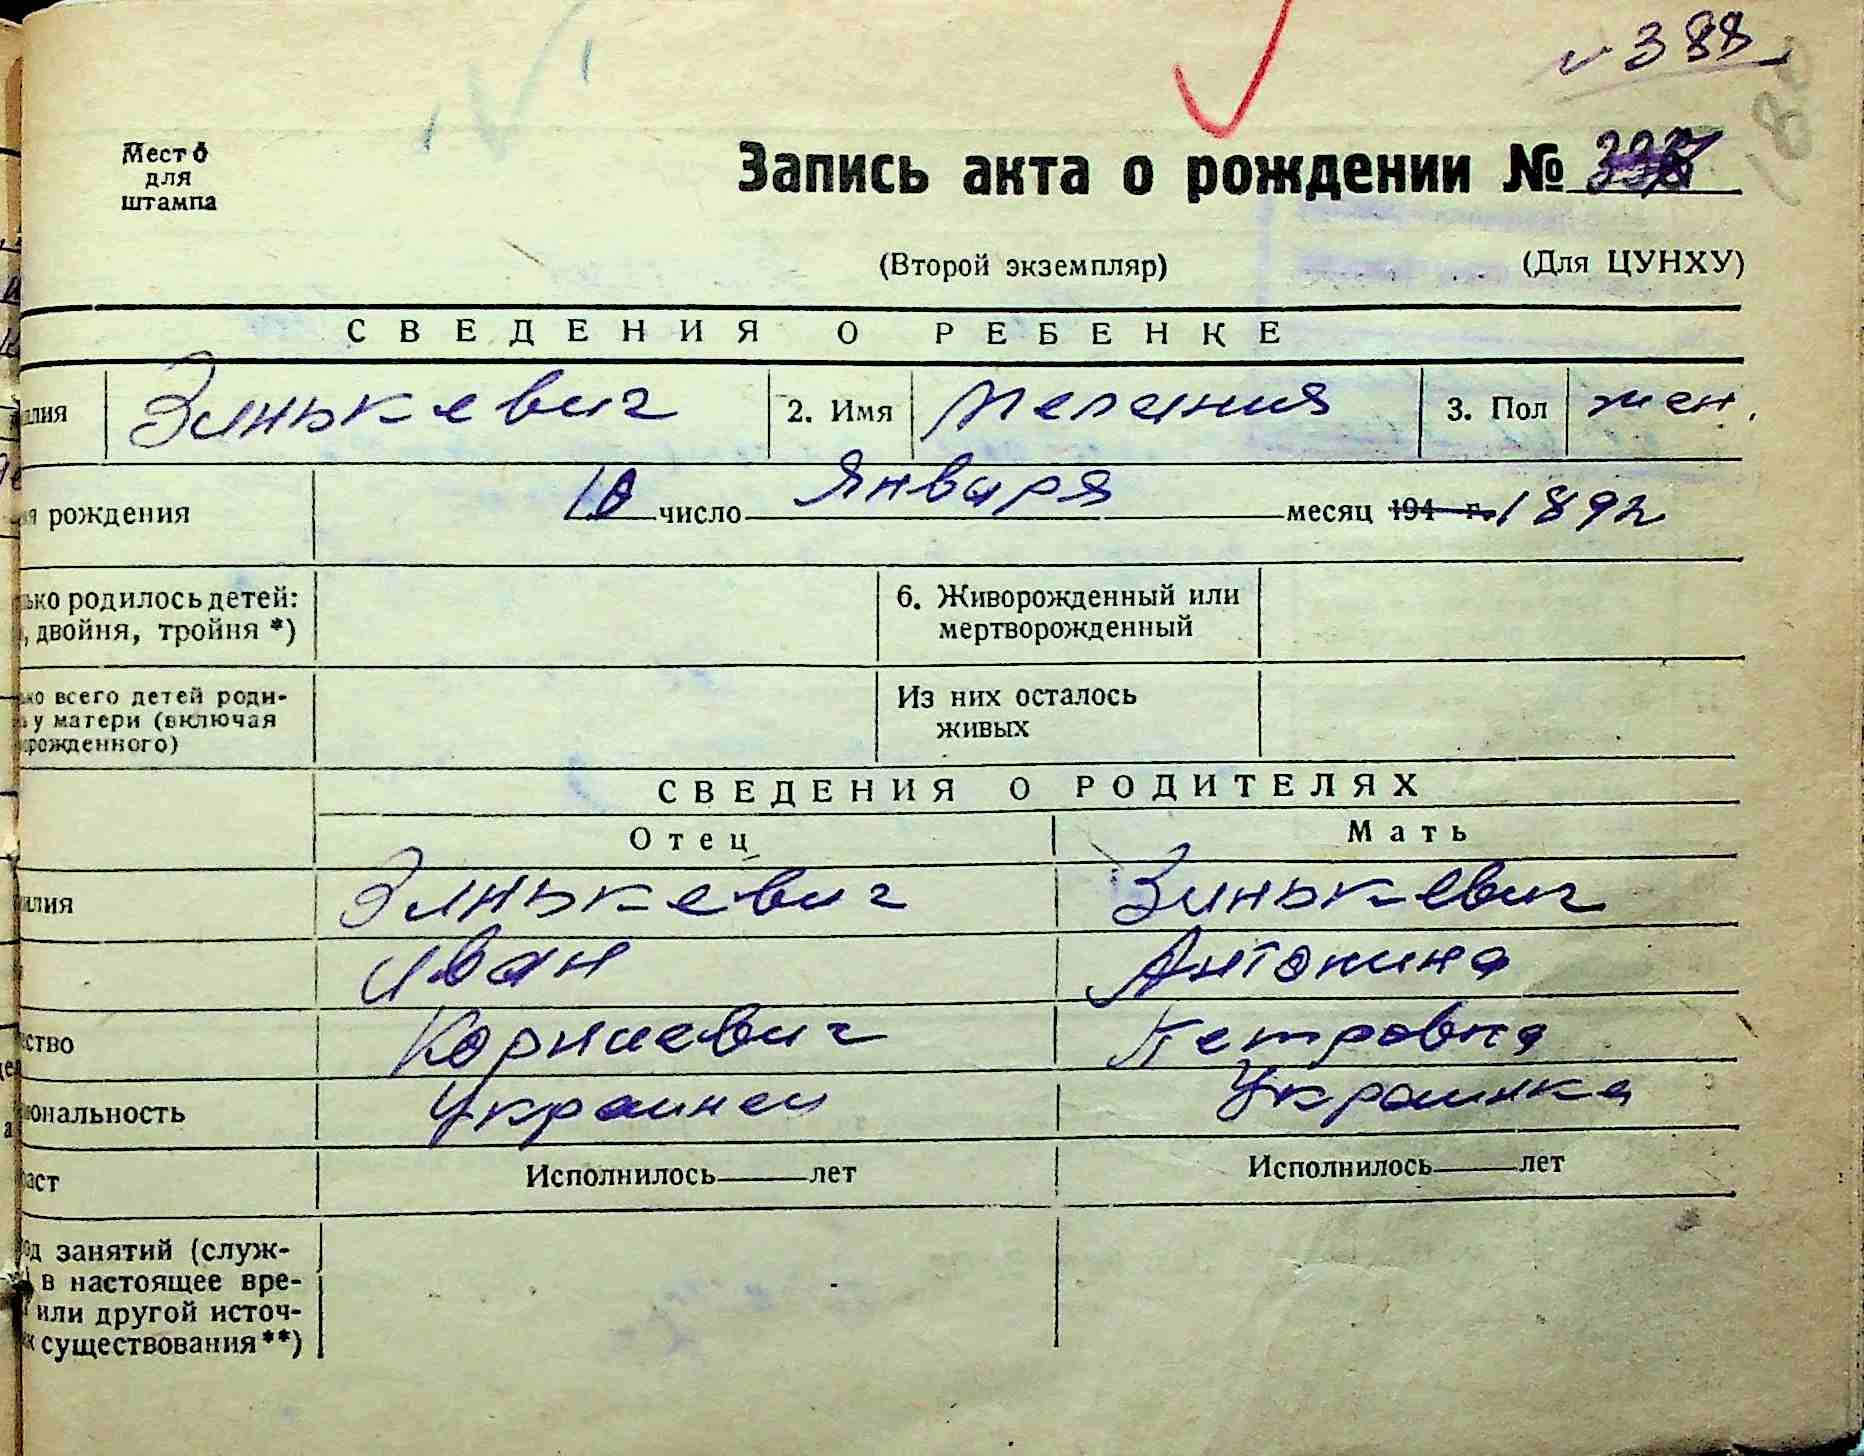 № 388
Место
для
штампа
Запись акта о рождении №
(Второй экземпляр) (Для ЦУНХУ)
СВЕДЕНИЯ О РЕБЕНКЕ
илия Зинькевич 2. Имя Мелания 3. Пол жен.
ия рождения 10 число Января месяц 194 г. 1892
ько родилось детей: 6. Живорожденный или
, двойня, тройня *) мертворожденный
ько всего детей роди- Из них осталось
ь у матери (включая живых
рожденного)
СВЕДЕНИЯ О РОДИТЕЛЯХ
Отец Мать
илия Зинькевич Зинькевич
Иван Антонина
ство Корнеевич Петровна
ональность Украинец Украинка
аст Исполнилось лет Исполнилось лет
од занятий (служ-
в настоящее вре-
или другой источ-
к существования **)